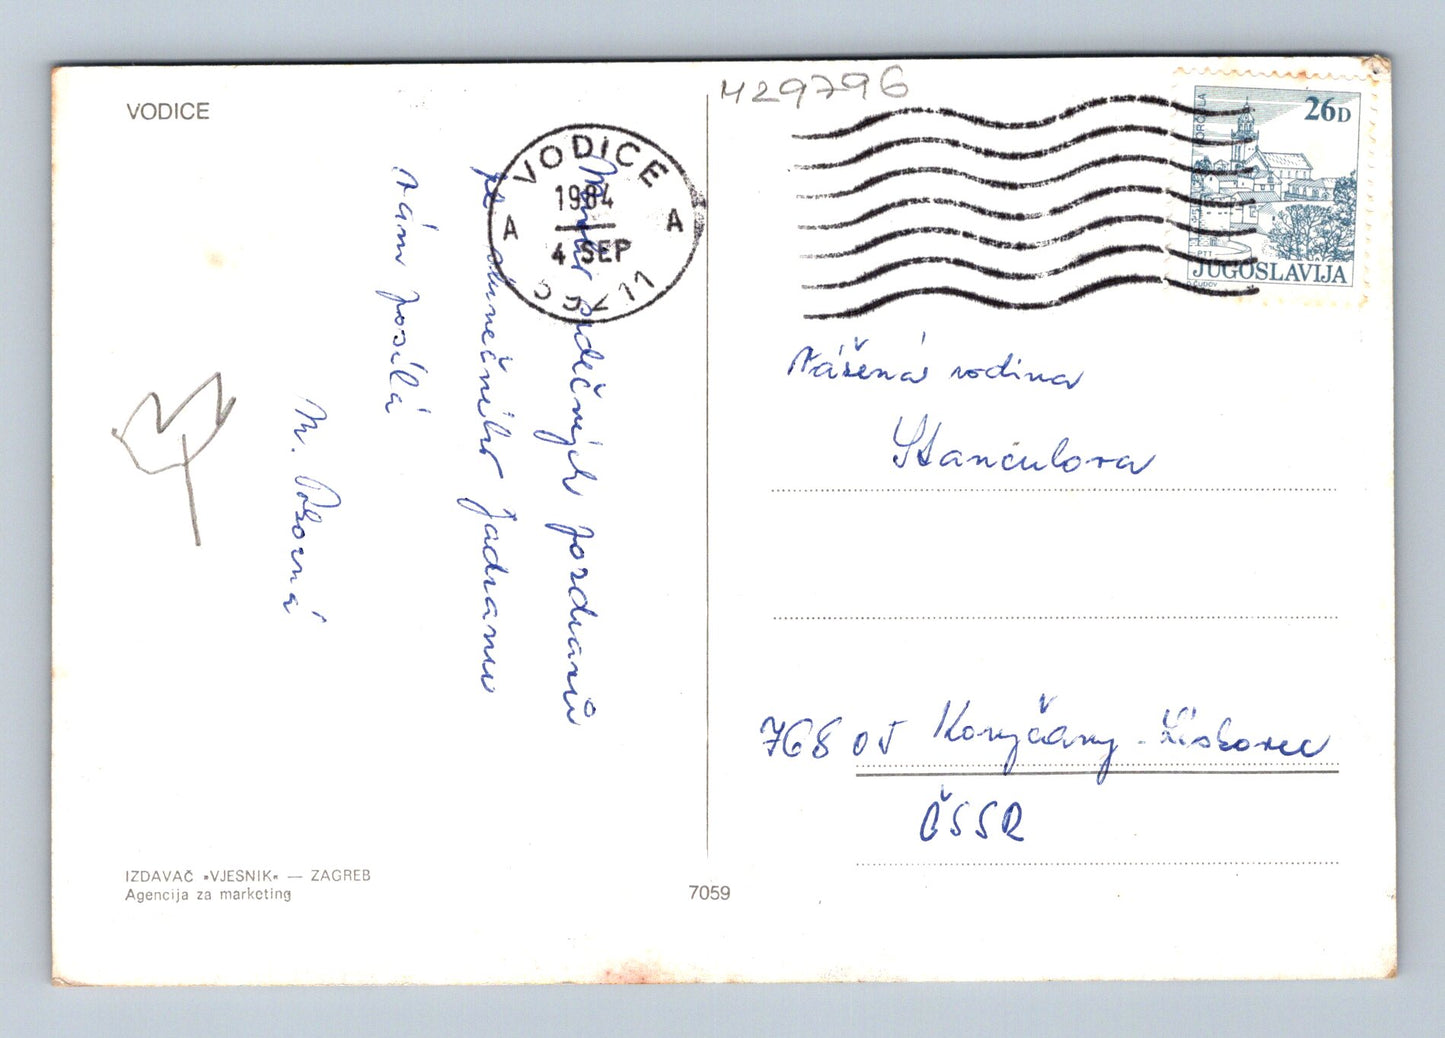 VODICE
M29796
VODICE
1984
4 SEP
A A
26D
JUGOSLAVIJA
PTT
Mnoho srdečných pozdravů
ze slunečného Jadranu
Vám posílá
M.
Vážená rodina
768 05 Koryčany -
ČSSR
IZDAVAČ »VJESNIK« — ZAGREB
Agencija za marketing
7059